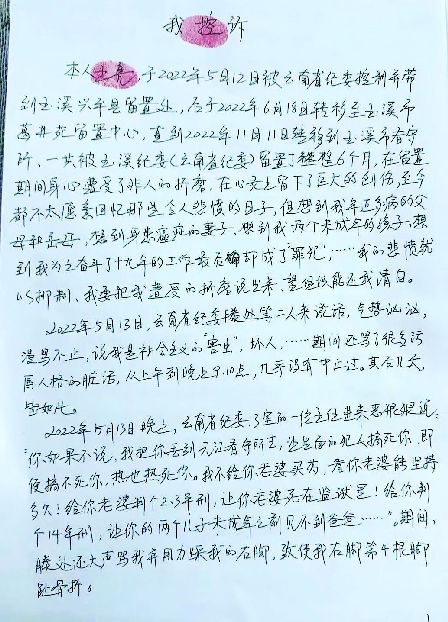 我控诉
本人王亮,于2022年5月12日被云南省纪委控制并带
到玉溪 留置处,后于2022年6月18日转移至玉溪市
留置中心,直到2022年11月11日转移到玉溪市看守
所、一共被玉溪纪委(云南省纪委)留置了整整6个月,在留置
期间身心遭受了非人的折磨,在心灵上留下了巨大的创伤,至今
都不太愿意回忆那些令人悲愤的日子,但想到我年迈多病的父
母和 ,想到身患癌症的妻子、想到我两个未成年的孩子,想
到我为之奋斗了十九年的工作最后 却成了"罪犯",……我的悲愤就
以抑制、我要把我遭受的折磨说出来、望组织能还我清白。
2022年5月13日,云南省纪委 二人来谈话,气势汹汹,
漫骂不止,说我是社会主义的"害虫",坏人,……期间还骂了很多污
辱人格的脏话,从上午到晚上9、10点,几乎没有中止过。其后几天,
皆如此。
2022年5月13日晚上,云南省纪委 室的一位主任进来恶狠狠说:
"你如果不说,我把你丢到元江看守所去,让里面的犯人搞死你,即
使搞不死你,热也热死你。我不给你老婆买药,看你老婆能坚持
多久!给你老婆判个2、3年刑,让你老婆死在监狱里!给你判
个14年刑,让你的两个儿子未成年之前见不到爸爸……"。期间,
还大声骂我并用力踩我的右脚,致使我右脚第 根脚
趾骨折。
1